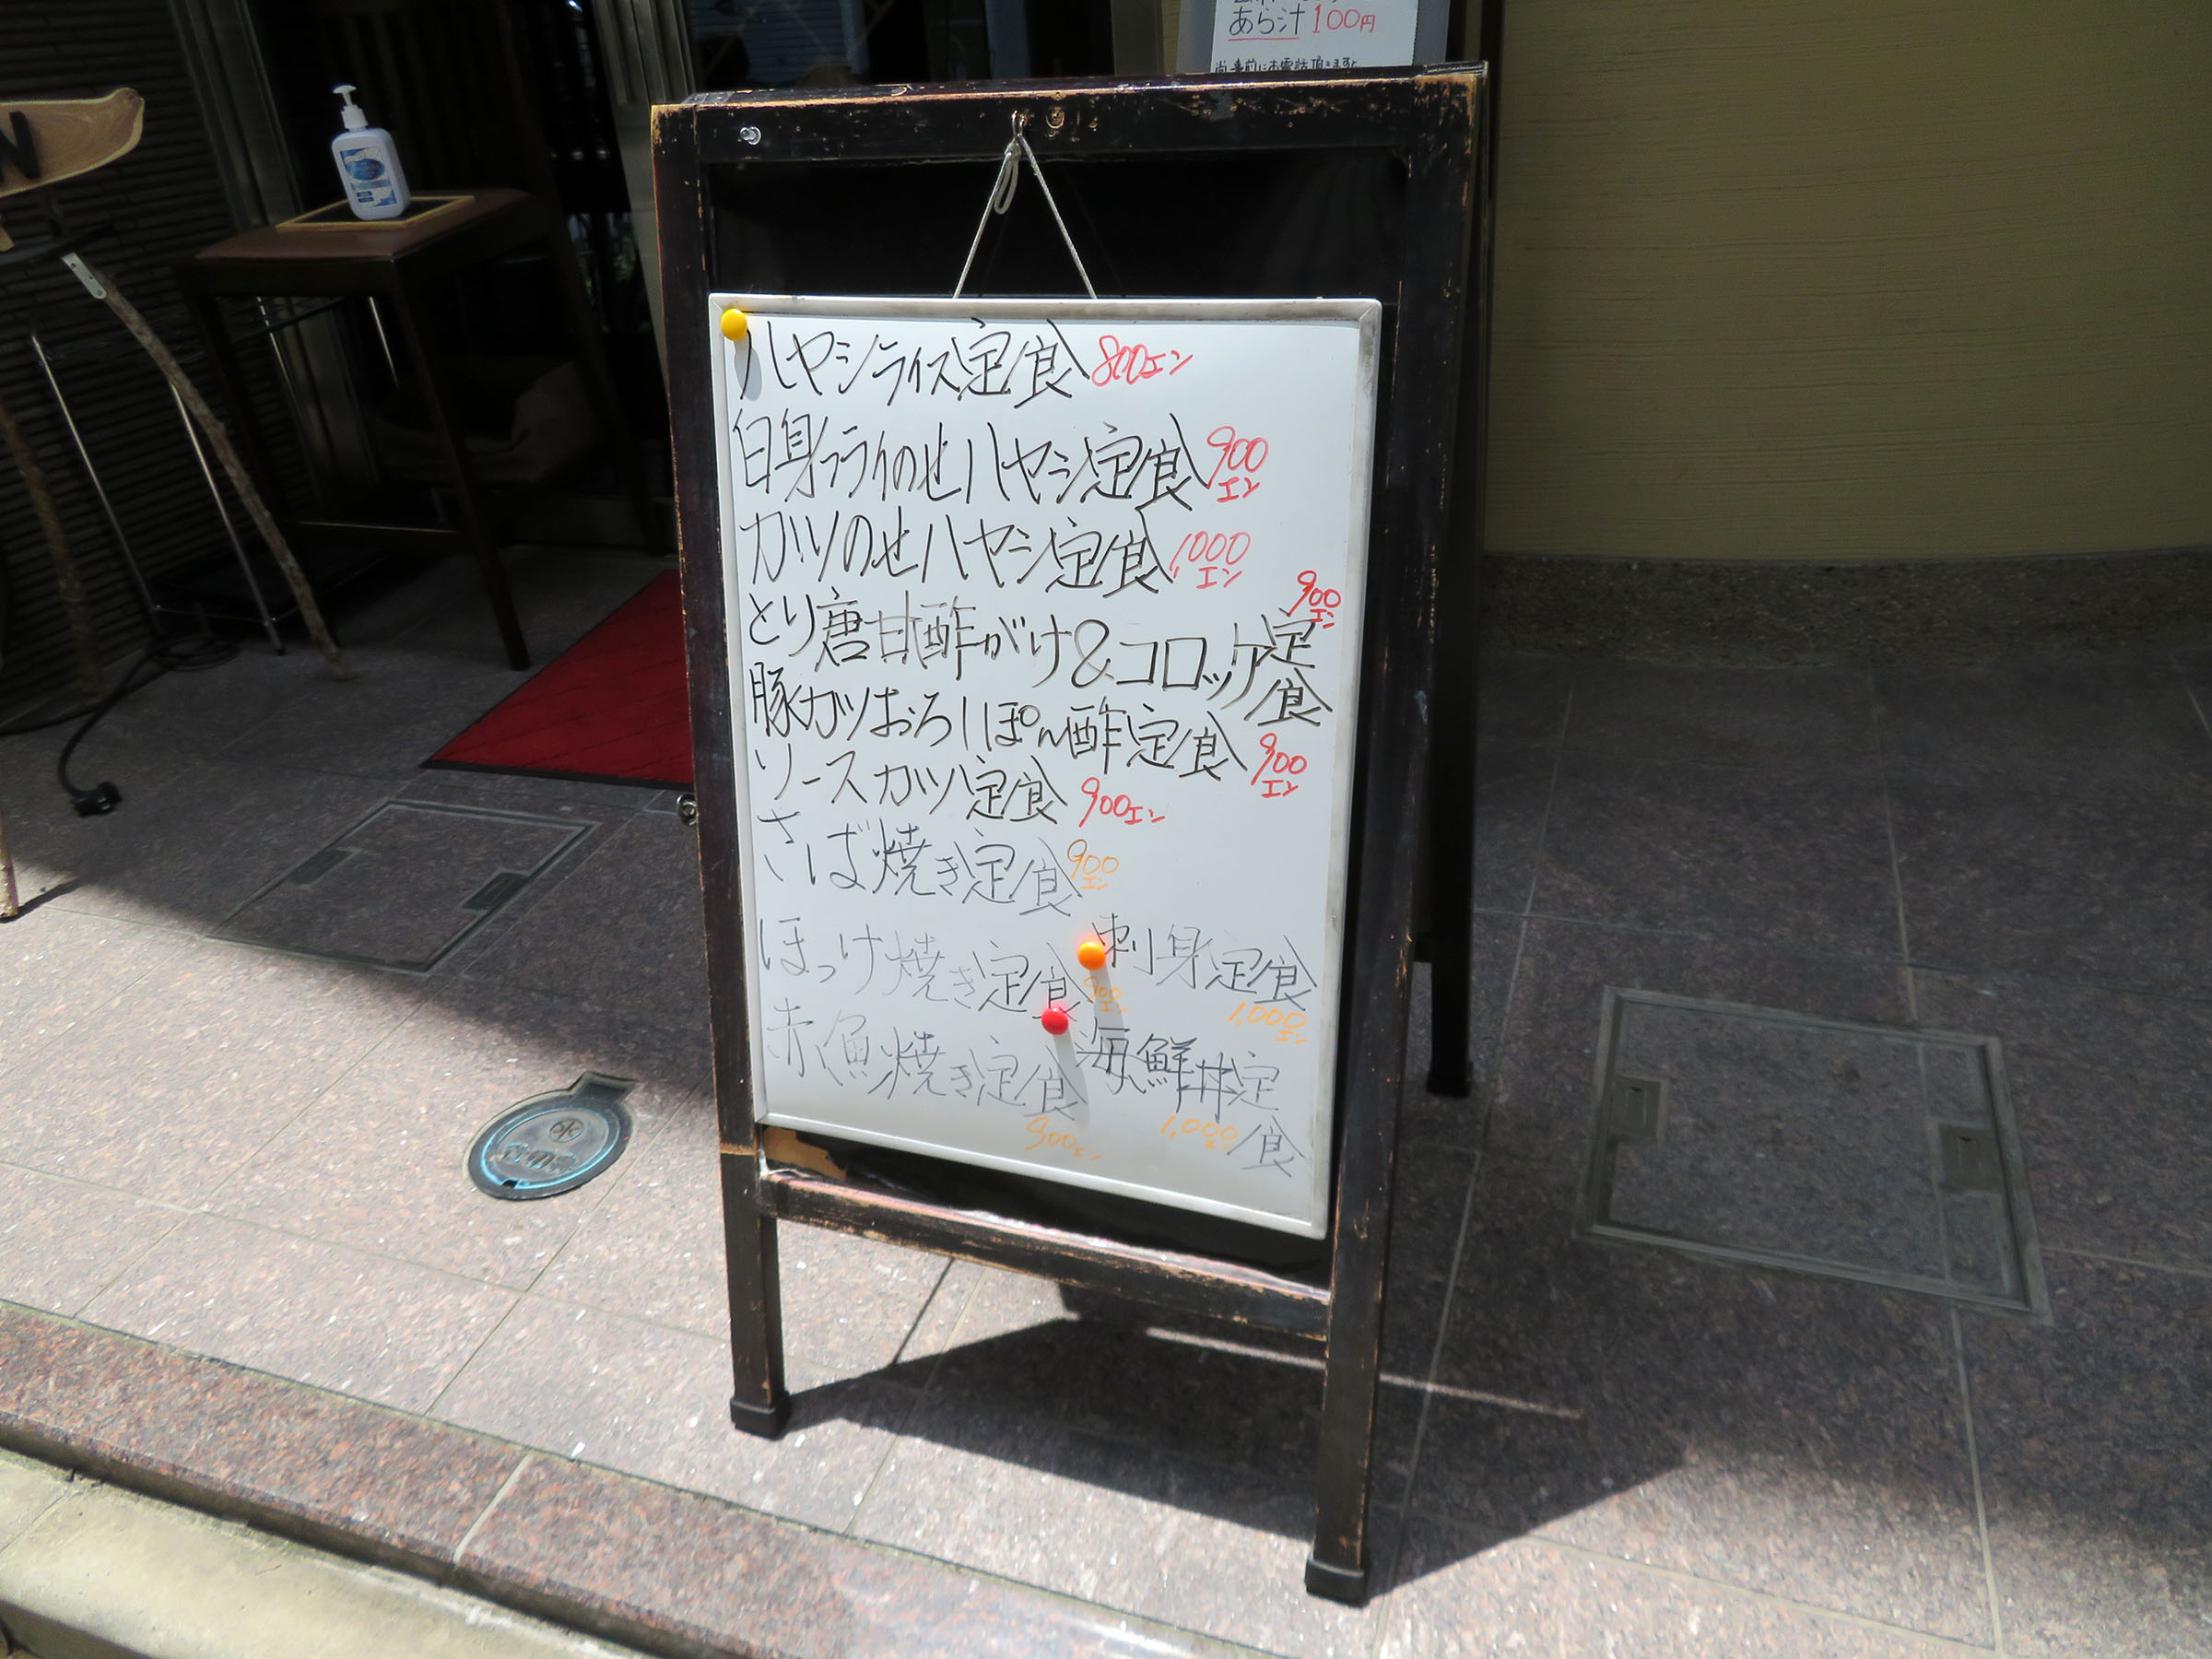 あら汁 100円
ハヤシライス定食 800エン
白身フライのせハヤシ定食 900エン
カツのせハヤシ定食 1000エン
とり唐甘酢がけ&コロッケ定食 900エン
豚カツおろしぽん酢定食 900エン
ソースカツ定食 900エン
さば焼き定食 900エン
ほっけ焼き定食 900エン
刺身定食 1,000エン
赤魚焼き定食 900エン
海鮮丼定食 1,000エン